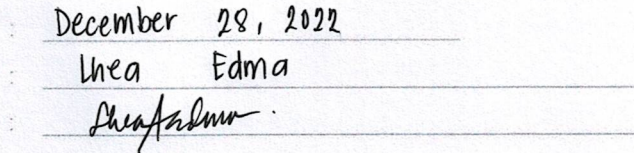 December 28, 2022
Lhea Edma